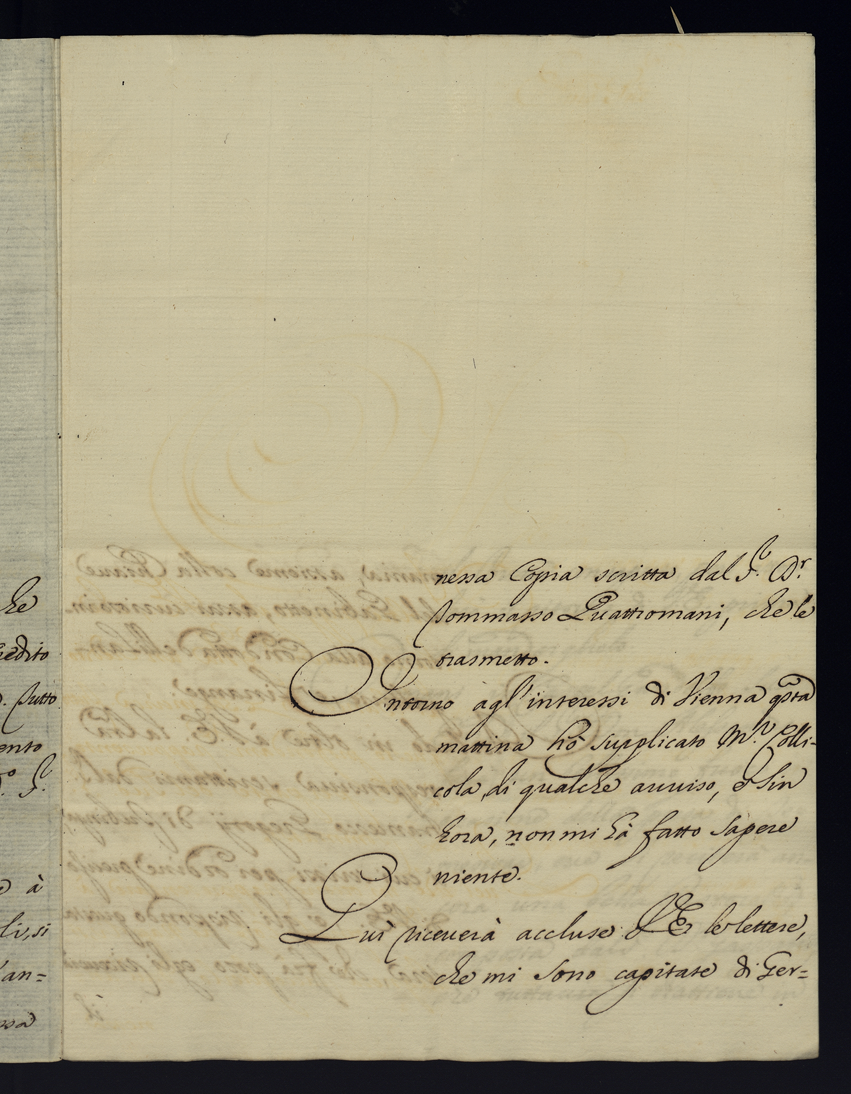 he
redito
o. Tutto
ento
e à
li, si
an=
ssa
nessa Copia scritta dal Sr. Dr.
Tommasso Quattromani, che le
trasmetto.
Intorno agl'interessi di Vienna qsta
mattina hò supplicato Mr. Colli-
cola, di qualche auuiso, e sin
hora, non mi hà fatto sapere
niente.
Quì riceuerà accluse VE le lettere,
che mi sono capitate di Ger=